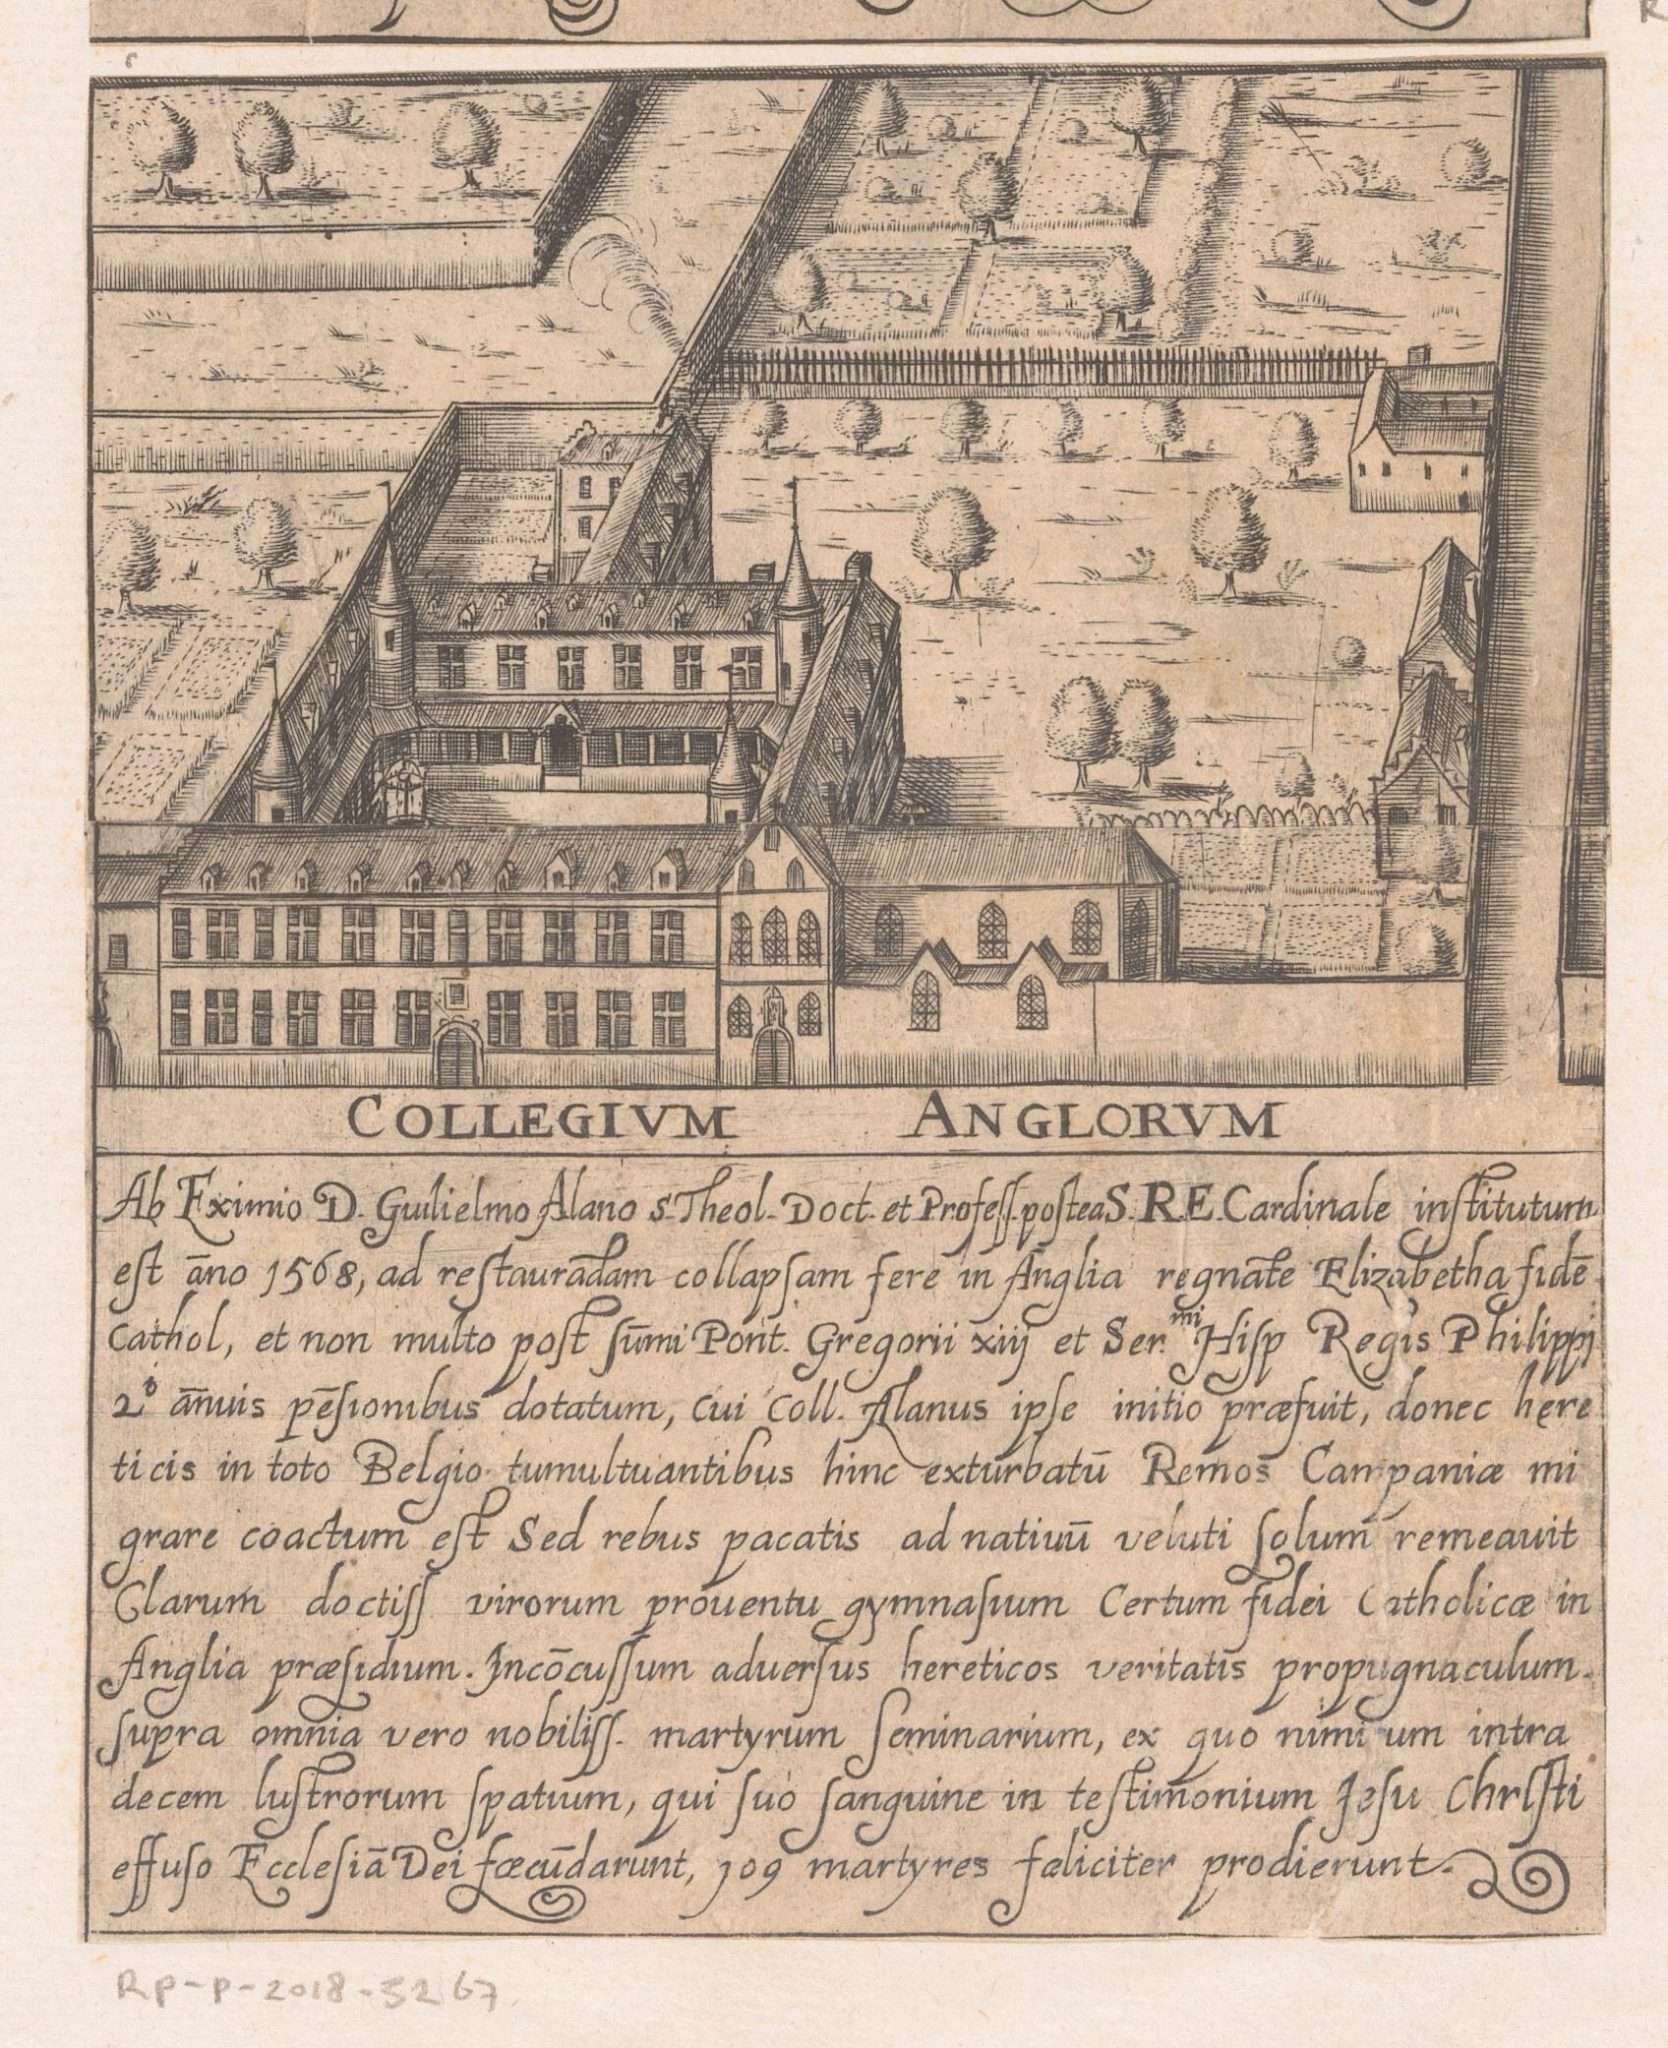 COLLEGIVM ANGLORVM
Ab Eximio D. Guilielmo Alano S. Theol. Doct. et Profeſſ. poſtea S. R. E. Cardinale inſtitutum
eſt āno 1568, ad reſtaurādam collapſam fere in Anglia regnāte Elizabetha fidē
Cathol, et non multo poſt ſūmi Pont. Gregorii xiij et Ser.mi Hiſp Regis Philippi
2º āñuis pēſionibus dotatum, cui Coll. Alanus ipſe initio præfuit, donec hęre
ticis in toto Belgio tumultuantibus hinc exturbatū Remos Campaniæ mi
grare coactum eſt Sed rebus pacatis ad natiuū veluti ſolum remeauit
Clarum doctiſſ virorum prouentu gymnaſium Certum fidei Catholicæ in
Anglia præſidium. Incōcuſſum aduerſus hereticos veritatis propugnaculum.
ſupra omnia vero nobiliſſ. martyrum Seminarium, ex quo nimirum intra
decem luſtrorum ſpatium, qui ſuo ſanguine in teſtimonium Jeſu Chriſti
effuſo Eccleſiā Dei fœcūdarunt, 109 martyres fœliciter prodierunt.
RP-P-2018-3267